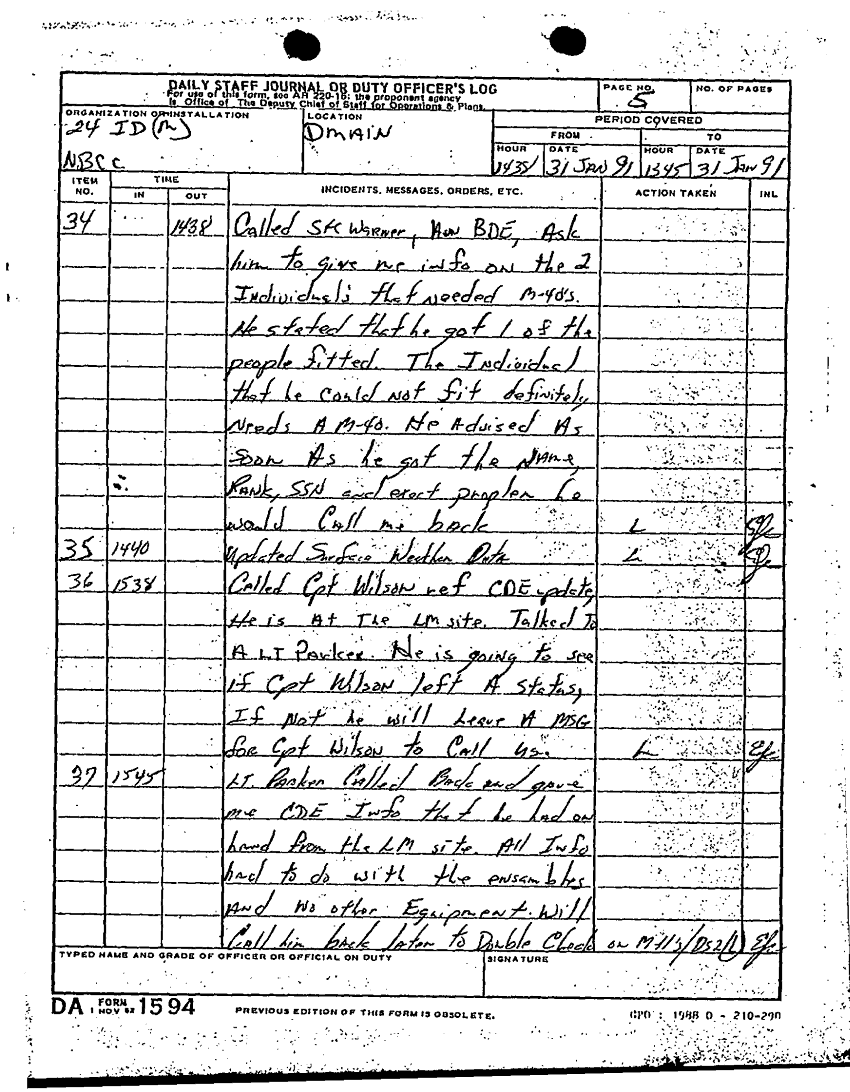 DAILY STAFF JOURNAL OR DUTY OFFICER'S LOG
For use of this form, see AR 220-15; the proponent agency
is Office of The Deputy Chief of Staff for Operations & Plans.
PAGE NO.
5
NO. OF PAGES
ORGANIZATION OR INSTALLATION
24 ID(M)
NBCC
LOCATION
DMAIN
PERIOD COVERED
FROM
TO
HOUR
DATE
HOUR
DATE
1438
31 JAN 91
1345
31 JAN 91
ITEM NO.
TIME
IN
OUT
INCIDENTS, MESSAGES, ORDERS, ETC.
ACTION TAKEN
INL
34 1438 Called Warner, BDE, Ask
him to give me info on the 2
Individual's that needed M-40's.
He stated that he got 1 of the
people fitted. The Individual
that he could not fit definitely
Needs A M-40. He Advised As
Soon As he got the Name,
Rank, SSN and exact proplem he
would Call me back L
35 1440 Updated Surface Weather Data L
36 1538 Called Cpt Wilson ref CDE update,
He is At The LM site. Talked To
A LT Parker. He is going to see
if Cpt Wilson left A Status,
If Not he will Leave A MSG
for Cpt Wilson to Call us. L
37 1545 LT. Parker Called Back and gave
me CDE Info that he had on
hand from the LM site. All Info
had to do with the ensambles
And No other Equipment. Will
Call him back later to Double Check on
TYPED NAME AND GRADE OF OFFICER OR OFFICIAL ON DUTY
SIGNATURE
DA FORM 1594
1 NOV 62
PREVIOUS EDITION OF THIS FORM IS OBSOLETE.
GPO : 1988 O - 210-290